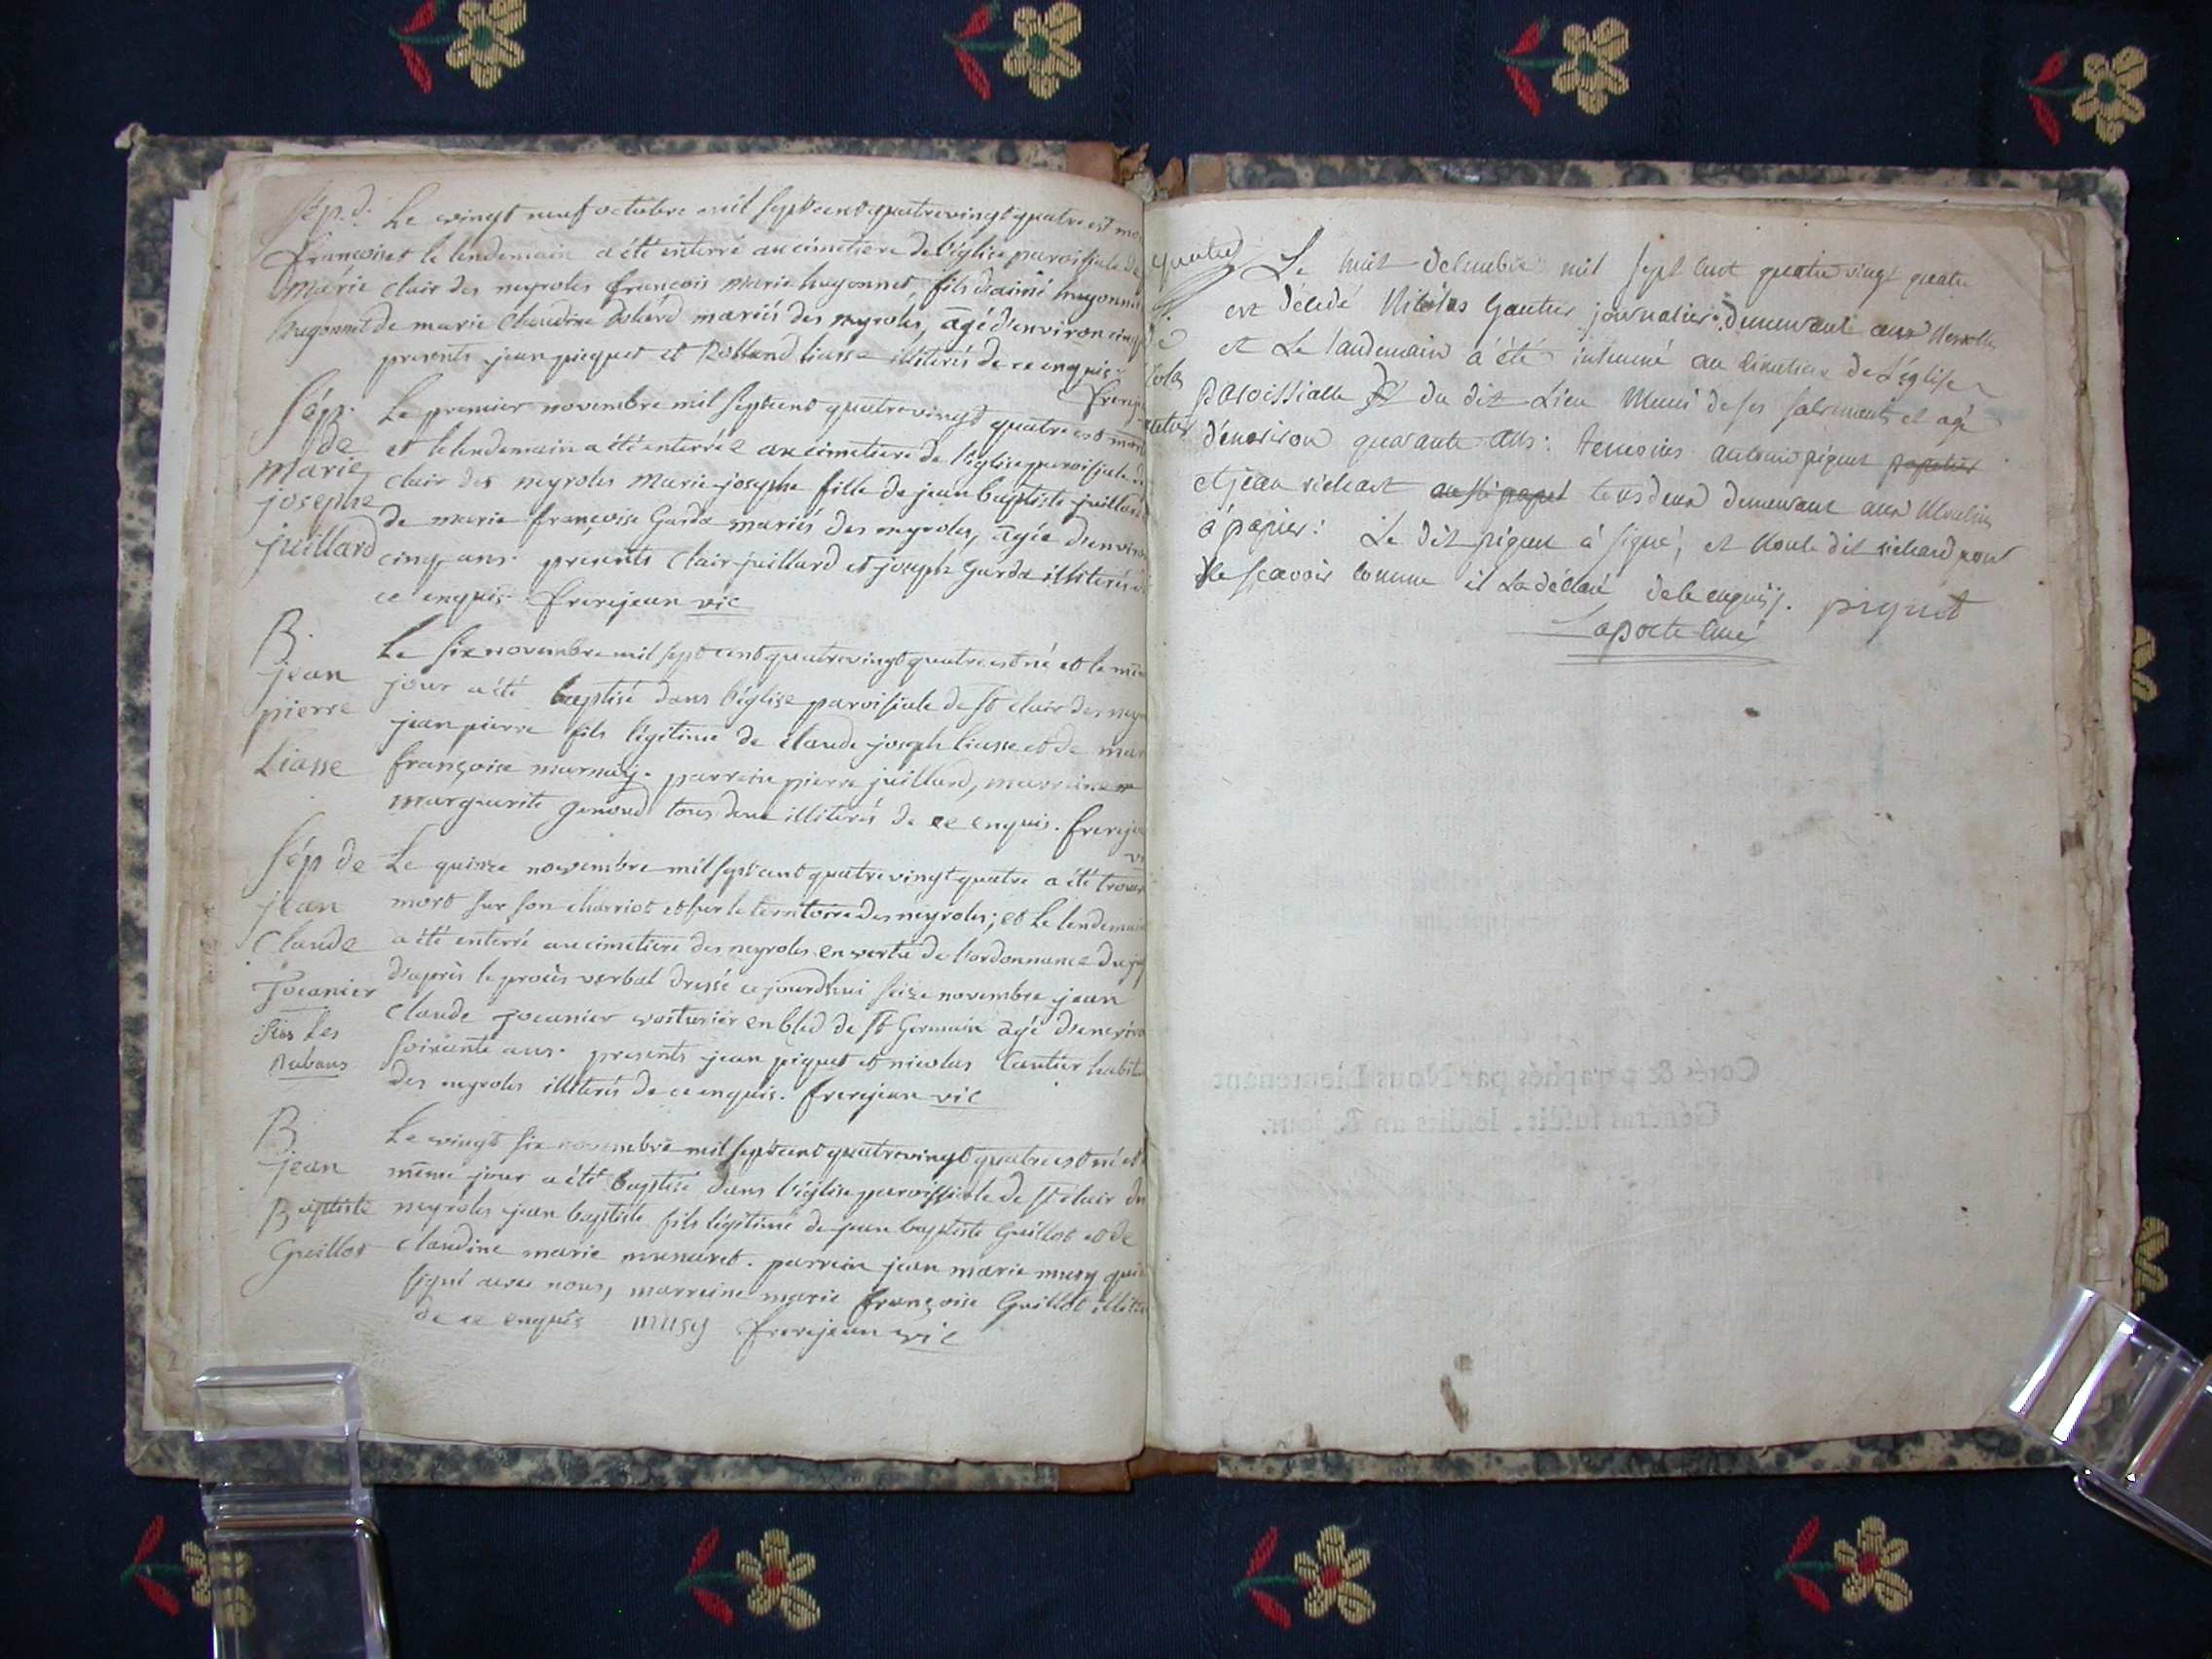 Sép. d.
françois
marie
hugonnet
Le vingt neuf octobre mil sept cent quatre vingt quatre est mo
et le lendemain a été enterré au cimetiere de l'église paroissiale de
clair des neyroles françois marie hugonnet, fils d'aimé hugonnet
de marie Claudine mariés des neyroles, âgé d'environ cinq
presents jean piequet et Rolland liasse illiterés de ce enquis.
frerej
Sép.
de
marie
josephe
juillard
Le premier novembre mil sept cent quatre vingt quatre est mort
et le lendemain a été enterrée au cimetiere de l'église paroissiale de
clair des neyroles Marie josephe fille de jean baptiste juillard
de marie françoise Garda mariés des neyroles, âgée d'enviro
cinq ans. presents Clair juillard et joseph Garda illiterés d
ce enquis. frerejean vic
B.
jean
pierre
Liasse
Le six novembre mil sept cent quatre vingt quatre est né et le mêm
jour a été baptisé dans l'église paroissiale de St clair des neyr
jean pierre fils légitime de claude joseph liasse et de mar
françoise marnay. parrein pierre juillard, marreine
marguerite genoud tous deux illiterés de ce enquis. frereje
vi
Sép de
jean
Claude
Jocanier
Les
Rubans
Le quinze novembre mil sept cent quatre vingt quatre a été trouv
mort sur son charriot et sur le territoire des neyroles; et Le lendemain
a été enterré au cimetiere des neyroles en vertu de l'ordonnance du ju
d'après le procès verbal dressé ce jourdhui seize novembre jean
claude jocanier voiturier en bled de St Germain agé d'enviro
soixante ans. presents jean piquet et nicolas Cautier habit
des neyroles illiterés de ce enquis. frerejean vic
B
jean
Baptiste
Guillot
Le vingt six novembre mil sept cent quatre vingt quatre est né et
même jour a été baptisé dans l'église paroissiale de St clair des
neyroles jean baptiste fils légitime de jean baptiste Guillot et de
claudine marie munaret. parrein jean marie musy qui
signé avec nous, marreine marie françoise Guillot illite
de ce enquis musy frerejean vic
Le huit decembre mil sept cent quatre vingt quatre
est décédé Nicolas Gautier journalier demeurant aux
et Le landemain a été inhumé au cimetiere de L'église
paroissialle du dit Lieu Muni de ses sacrements et agé
d'environ quarante ans: temoins piquet papetier
et jean richard tous deux demeurant aux Moulins
à papier: Le dit piquet à signé; et non le dit richard pour
ne sçavoir comme il La déclaré de ce enquis. piquet
Laporte curé